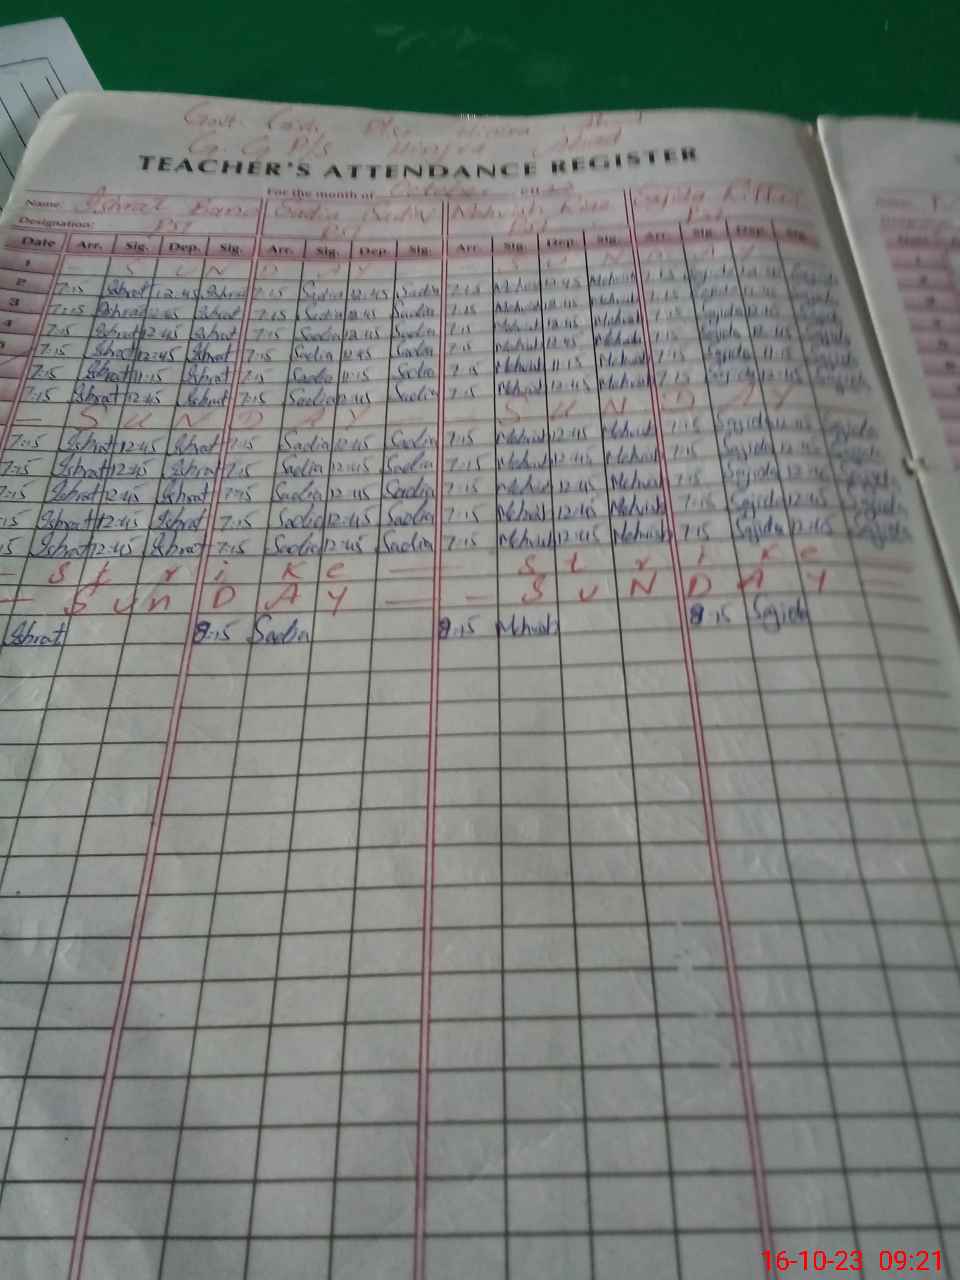 Govt. Girls P/s Hinjra Abad
G. G P/s Hinjra Abad
TEACHER'S ATTENDANCE REGISTER
For the month of October
Name Ishrat Bano Sadia Sadiq Mehvish Sajida
Designation: PST PST PST PST
Date Arr. Sig. Dep. Sig. Arr. Sig. Dep. Sig. Arr. Sig. Dep. Sig. Arr. Sig. Dep. Sig.
1 — S U N D A Y — S U N D A Y
2 7:15 Ishrat 12:45 Ishrat 7:15 Sadia 12:45 Sadia 7:15 Mehvish 12:45 Mehvish 7:15 Sajida 12:45 Sajida
3 7:15 Ishrat 12:45 Ishrat 7:15 Sadia 12:45 Sadia 7:15 Mehvish 12:45 Mehvish 7:15 Sajida 12:45 Sajida
4 7:15 Ishrat 12:45 Ishrat 7:15 Sadia 12:45 Sadia 7:15 Mehvish 12:45 Mehvish 7:15 Sajida 12:45 Sajida
7:15 Ishrat 12:45 Ishrat 7:15 Sadia 12:45 Sadia 7:15 Mehvish 12:45 Mehvish 7:15 Sajida 12:45 Sajida
7:15 Ishrat 11:15 Ishrat 7:15 Sadia 11:15 Sadia 7:15 Mehvish 11:15 Mehvish 7:15 Sajida 11:15 Sajida
7:15 Ishrat 12:45 Ishrat 7:15 Sadia 12:45 Sadia 7:15 Mehvish 12:45 Mehvish 7:15 Sajida 12:45 Sajida
— S U N D A Y — S U N D A Y
7:15 Ishrat 12:45 Ishrat 7:15 Sadia 12:45 Sadia 7:15 Mehvish 12:45 Mehvish 7:15 Sajida 12:45 Sajida
7:15 Ishrat 12:45 Ishrat 7:15 Sadia 12:45 Sadia 7:15 Mehvish 12:45 Mehvish 7:15 Sajida 12:45 Sajida
7:15 Ishrat 12:45 Ishrat 7:15 Sadia 12:45 Sadia 7:15 Mehvish 12:45 Mehvish 7:15 Sajida 12:45 Sajida
:15 Ishrat 12:45 Ishrat 7:15 Sadia 12:45 Sadia 7:15 Mehvish 12:45 Mehvish 7:15 Sajida 12:45 Sajida
5 Ishrat 12:45 Ishrat 7:15 Sadia 12:45 Sadia 7:15 Mehvish 12:45 Mehvish 7:15 Sajida 12:45 Sajida
— S t r i K e — — S t r i K e —
— S u n D A Y — — S u N D A Y —
Ishrat 8:15 Sadia 8:15 Mehvish 8:15 Sajida
16-10-23 09:21